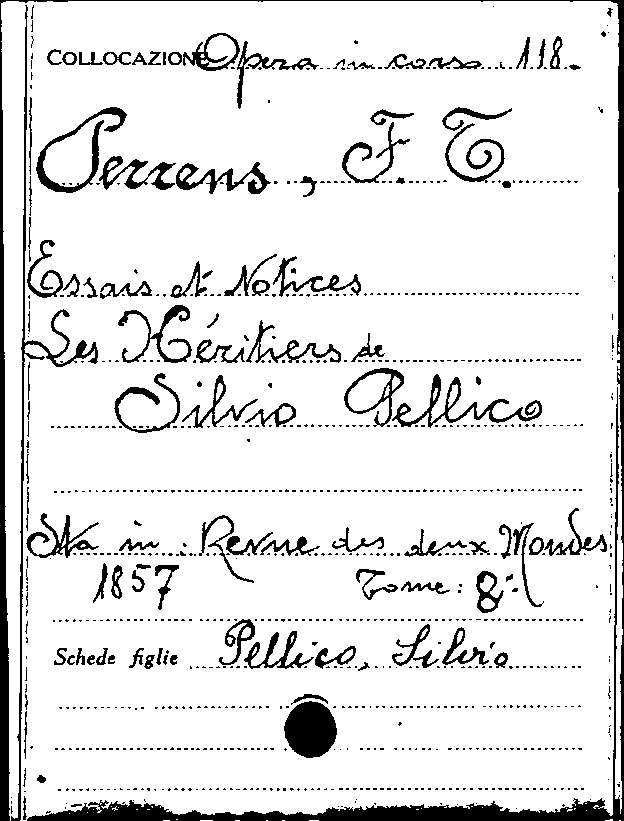 COLLOCAZIONE Opera in corso 118.
Perrens, F. T.
Essais et Notices
Les Héritiers de
Silvio Pellico
Sta in: Revue des deux Mondes
1857 Tome: 8:
Schede figlie Pellico, Silvio